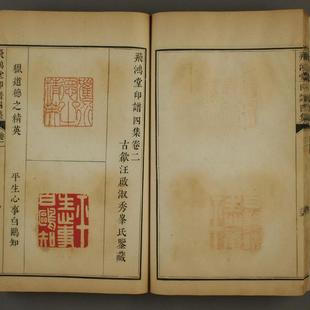 飛鴻堂印譜四集卷二
古歙汪啟淑秀峯氏鑒藏
獵道德之精英
平生心事白鷗知
平生心事白鷗知
飛鴻堂印譜四集
卷二
飛鴻堂印譜四集